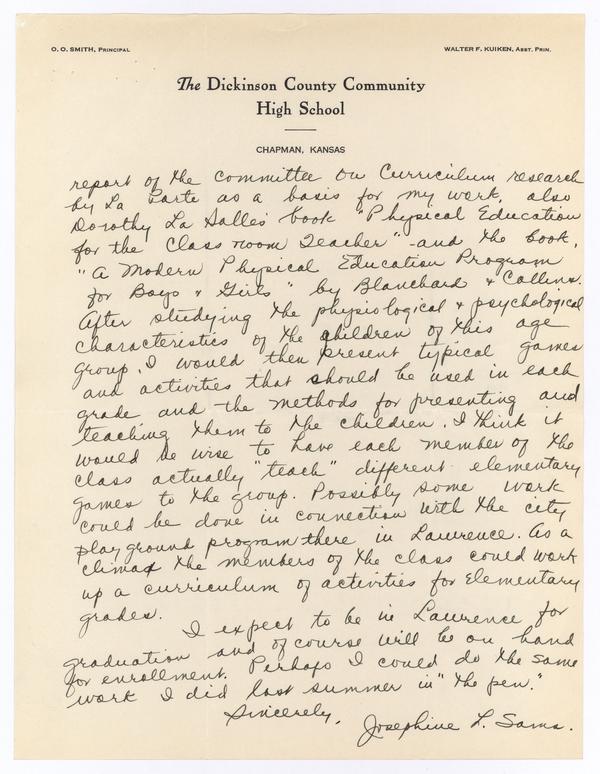 O. O. SMITH, PRINCIPAL
WALTER F. KUIKEN, ASST. PRIN.
The Dickinson County Community
High School
CHAPMAN, KANSAS
report of the committee on Curriculum research
by La Porte as a basis for my work, also
Dorothy La Salle's book "Physical Education
for the Class room Teacher" - and the book,
"A Modern Physical Education Program
for Boys & Girls" by Blanchard & Collins.
After studying the physiological & psychological
characteristics of the children of this age
group, I would then present typical games
and activities that should be used in each
grade and the methods for presenting and
teaching them to the children. I think it
would be wise to have each member of the
class actually "teach" different elementary
games to the group. Possibly some work
could be done in connection with the city
playground program there in Lawrence. As a
climax the members of the class could work
up a curriculum of activities for Elementary
grades.
I expect to be in Lawrence for
graduation and of course will be on hand
for enrollment. Perhaps I could do the same
work I did last summer in "the pen."
Sincerely,
Josephine L. Sams.